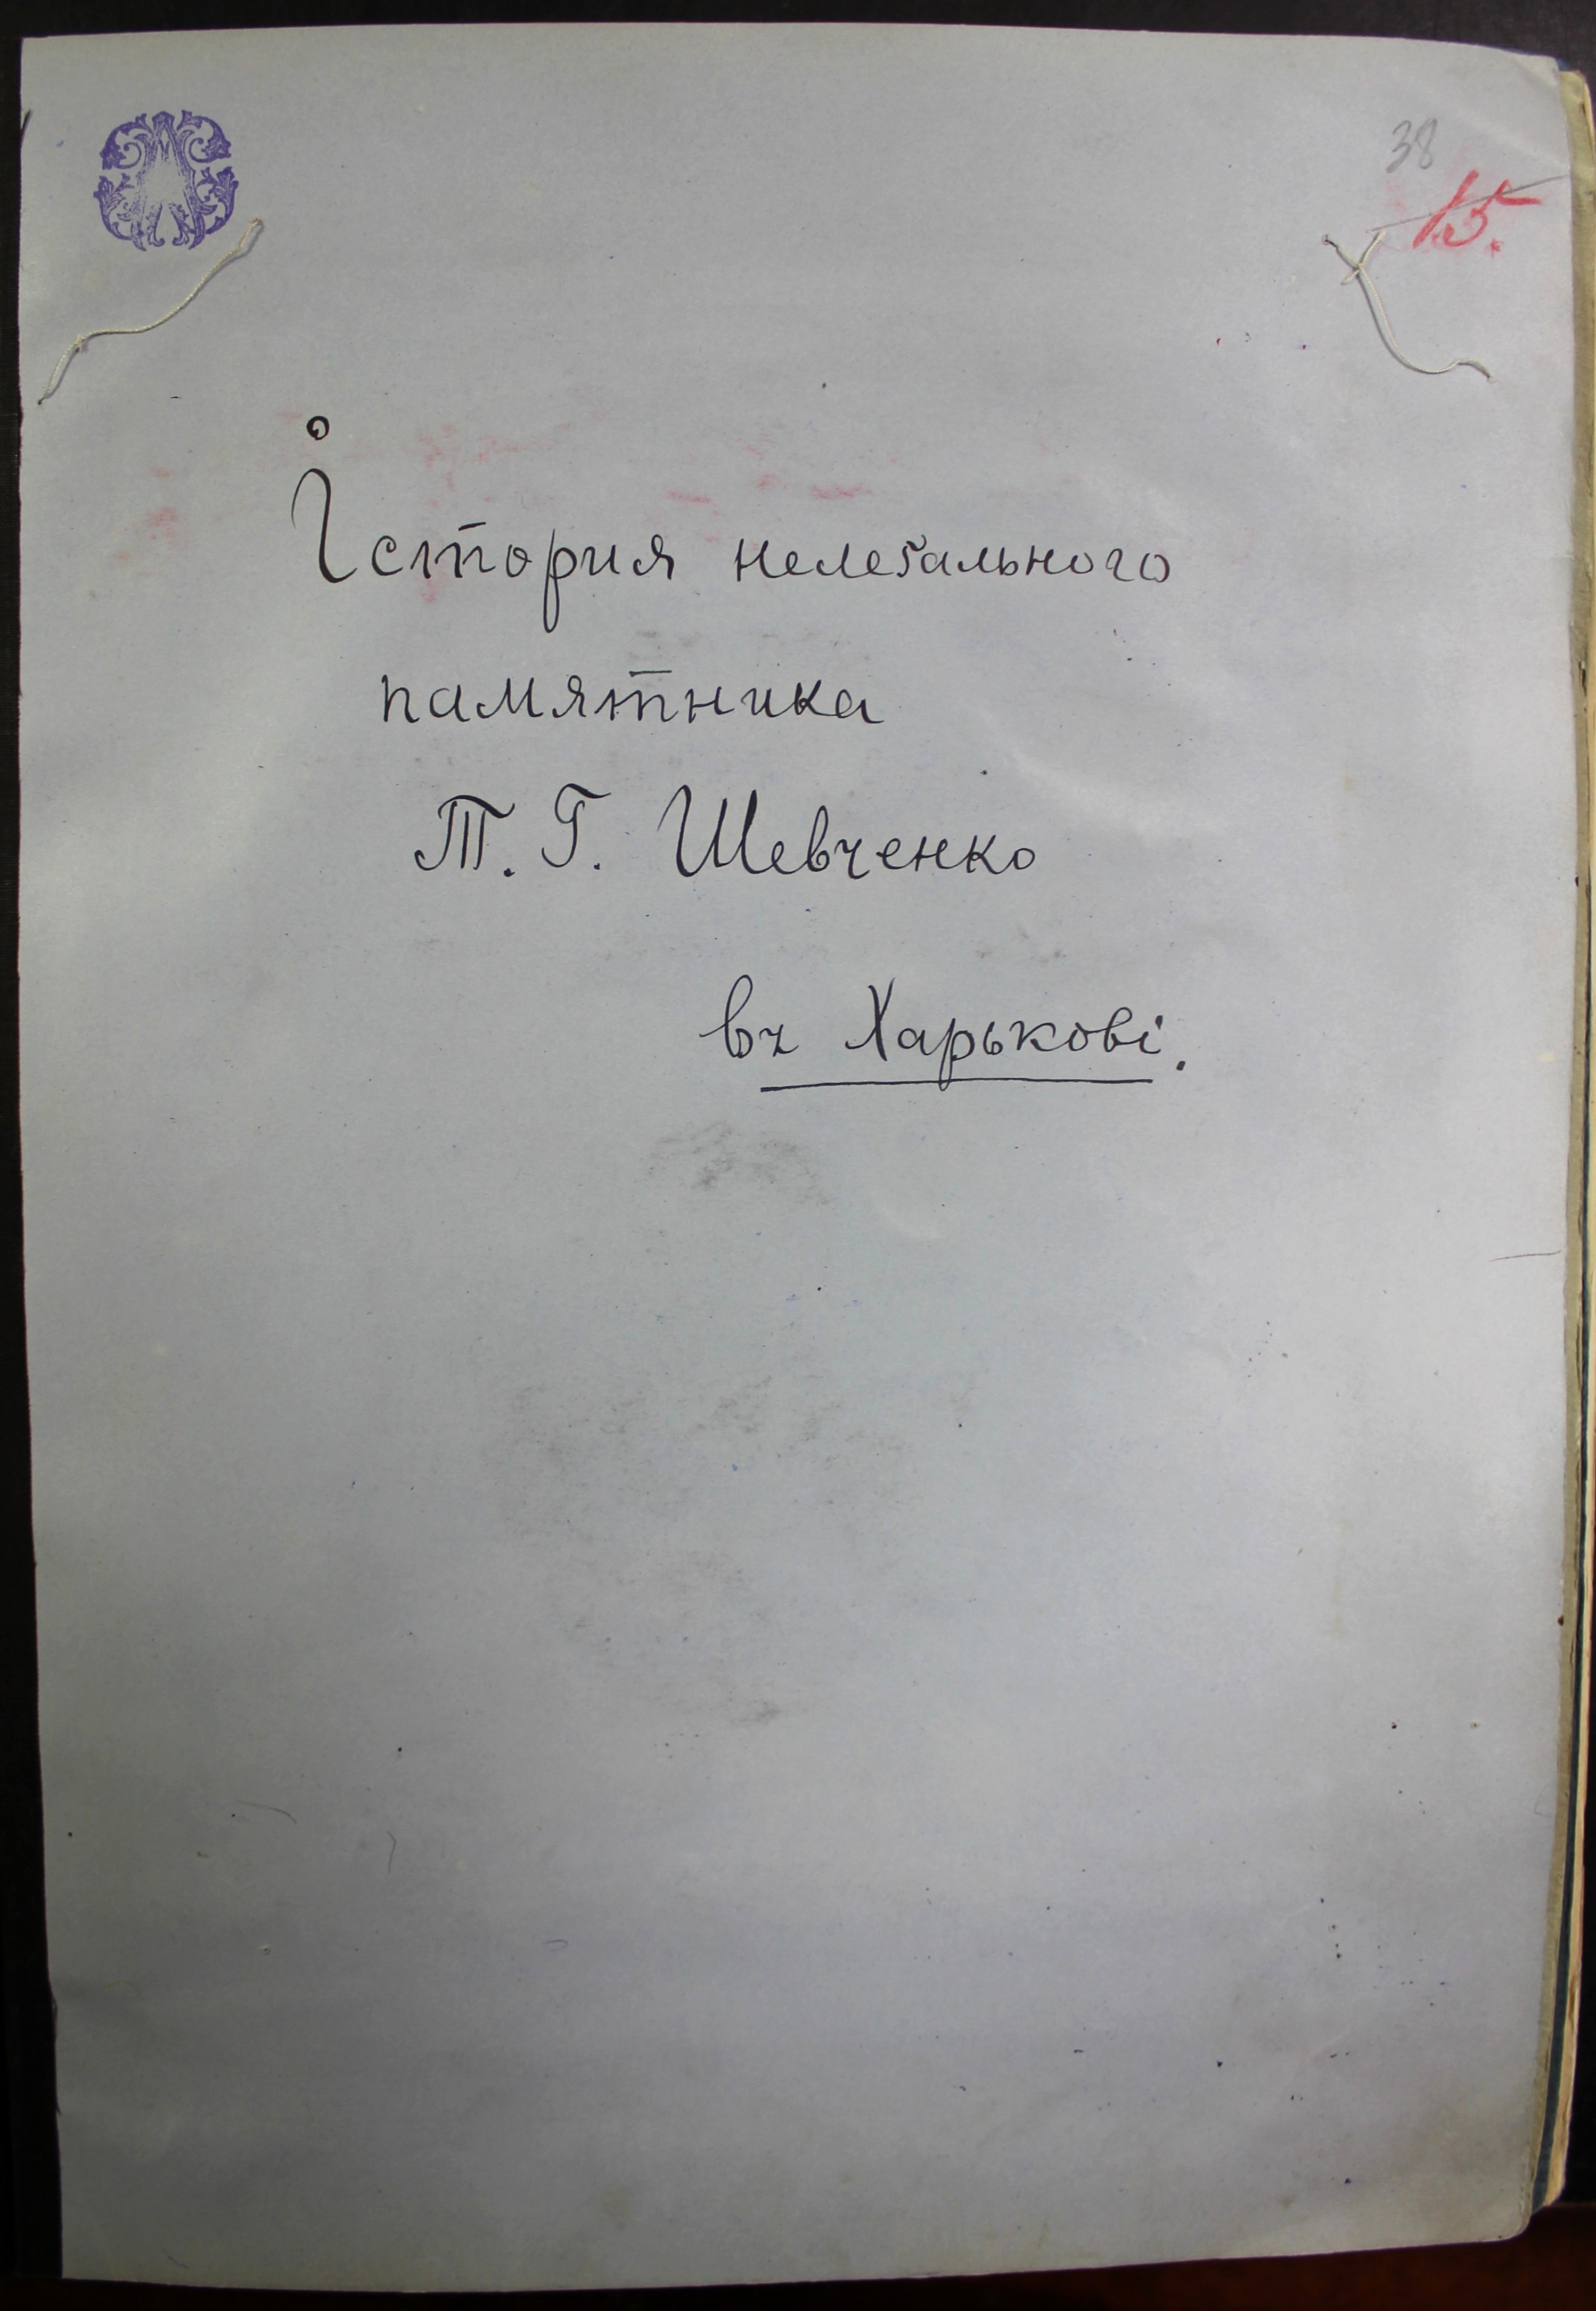 38
15.
Істория нелеґального
памятника
Т. Г. Шевченко
въ Харькові.